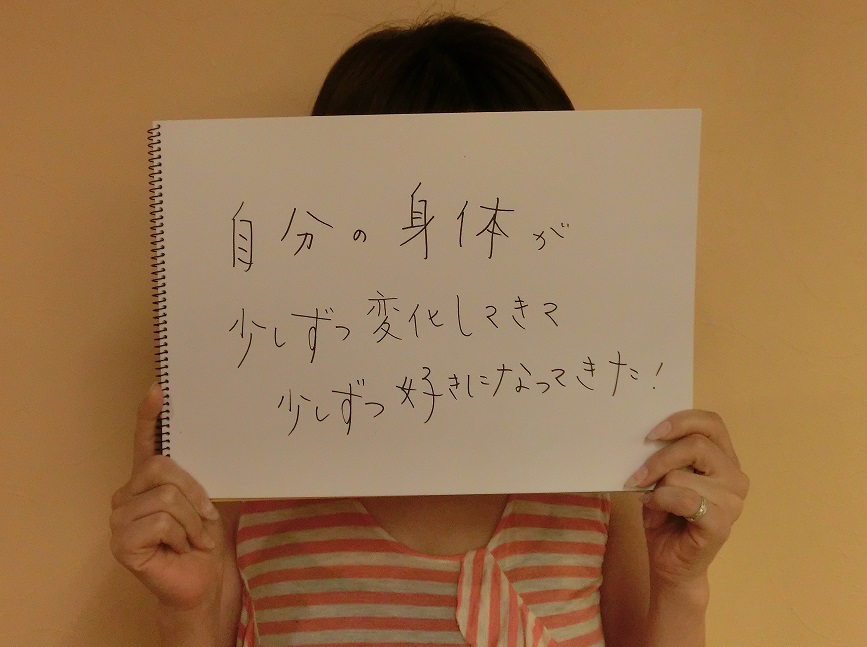 自分の身体が
少しずつ変化してきて
少しずつ好きになってきた!